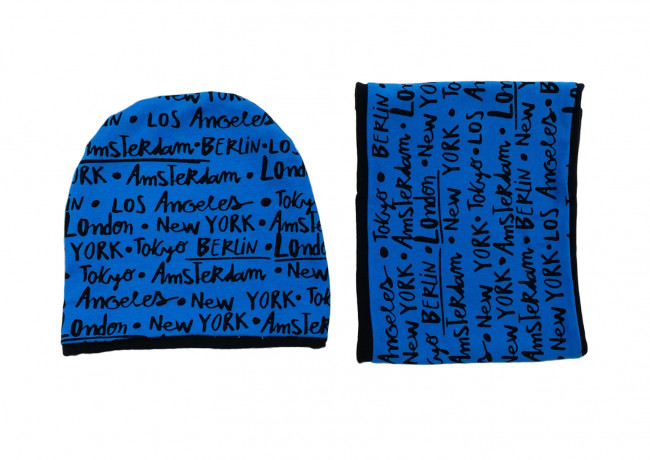 New YORK
• LOS Angeles •
Amsterdam • BERLIN • LO
YORK • Amsterdam •
IN • LOS Angeles • Tokyo
London • New YORK • Am
YORK • Tokyo BERLIN • Lond
• Tokyo • Amsterdam • New
Angeles • New YORK •
London • New YORK • Amste
Angeles • Tokyo • BERLIN • Lon
New YORK • Amsterdam •
kyo BERLIN • London • New YORK
Amsterdam • New YORK •
Angeles • New YORK • Tokyo • LOS An
New YORK • Tokyo • Amsterdam •
Amsterdam • BERLIN • New
New YORK • LOS Angeles